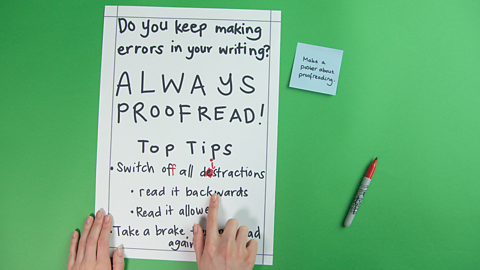 Do you keep making
errors in your writing?
ALWAYS
PROOFREAD!
Top Tips
• Switch off all distractions
• read it backwards
• Read it allowe
• Take a brake
again
Make a
poster about
proofreading.